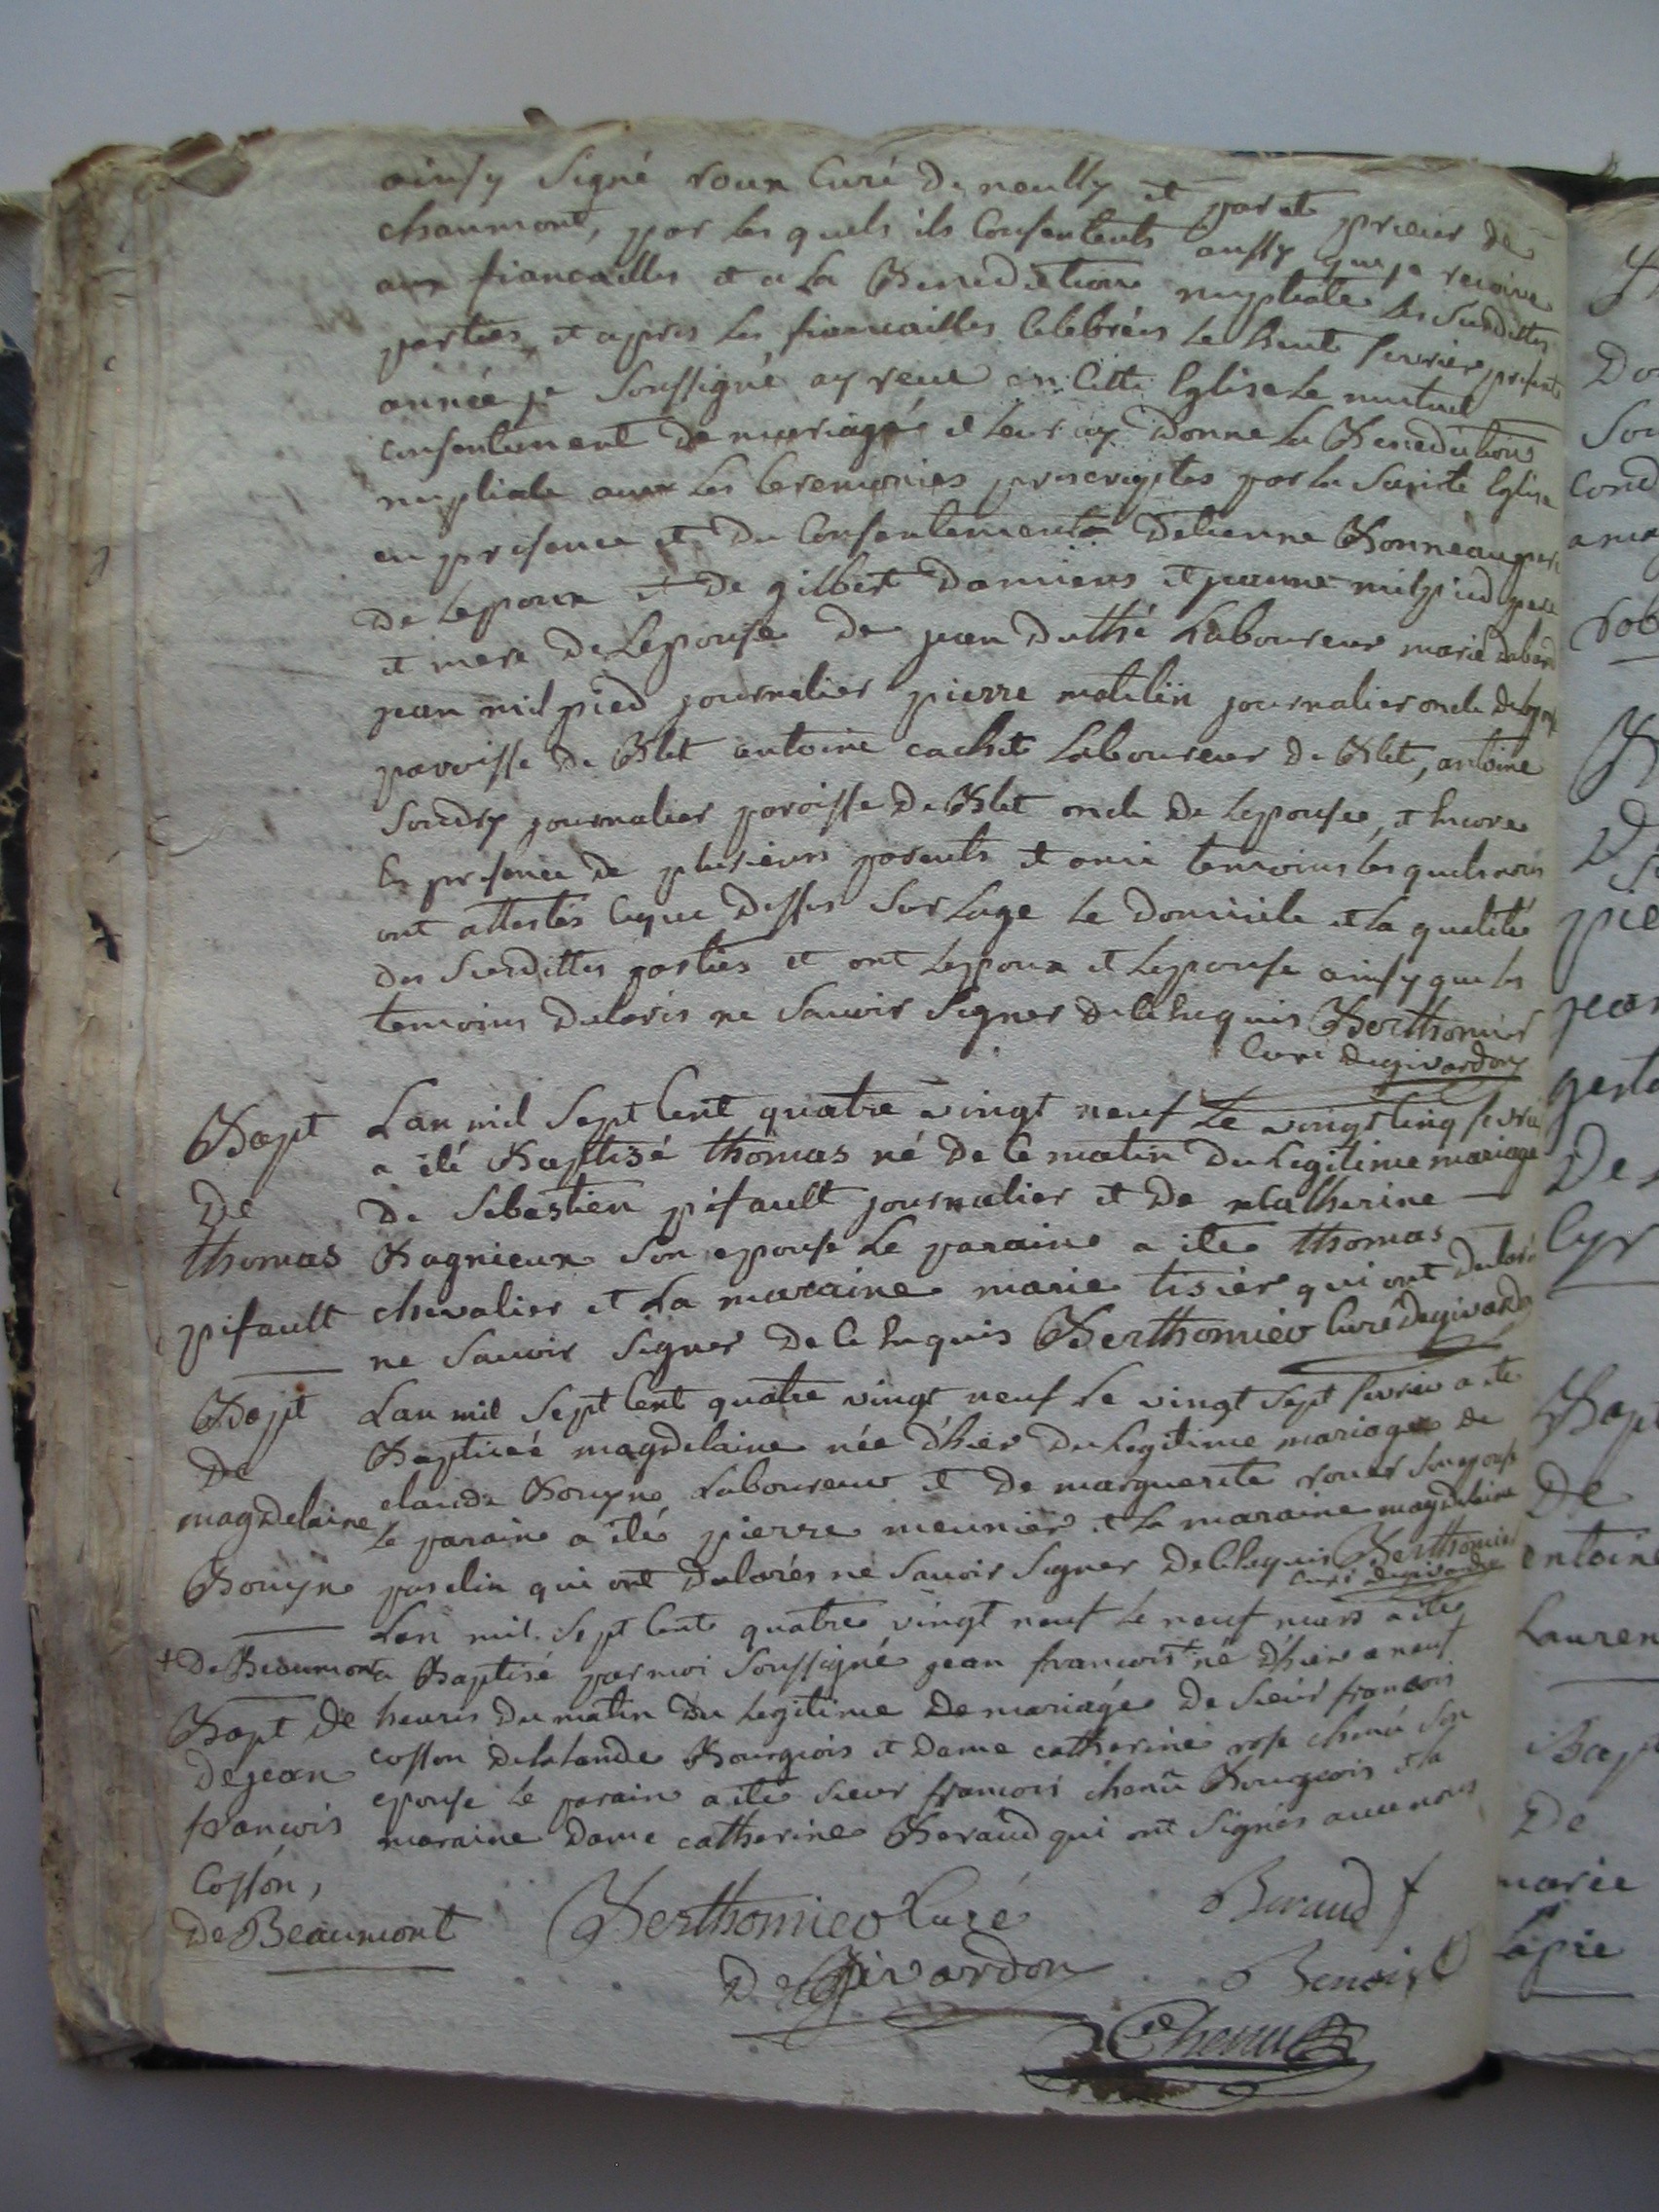 ainsy signé roux curé de neully et poret prieur de
chaumont, par les quels ils consentents aussy que je recoive
aux fiancailles et a la Benediction nuptiale les susdittes
parties, et apres les fiancailles celebrées le huit fevrier presente
année je soussigné ay receu en cette Eglise le mutuel
consentement de mariage et leur ay donne la Benediction
nuptiale avec les ceremonies prescriptes par la sainte Eglise
en presence et du consentement detienne Bonneau pere
de lepoux et de gilbert Damiens et jeanne milpied pere
et mere de lepouse de jean duthé laboureur
jean milpied journalier pierre matelin journalier oncle
paroisse de Blet antoine cachet laboureur de Blet, antoine
soudry journalier paroisse de Blet oncle de lepousée, et encore
en presence de plusieurs parents et amis temoins les quels nous
ont attestés ceque dessus sur lage le domicile et la qualité
des susdittes parties et ont lepoux et lepouse ainsy que les
temoins declarés ne savoir signer de ce enquis Berthomier
curé degivardon
Bapt
De
thomas
pifault
Lan mil sept cent quatre vingt neuf le vingt cinq fevrier
a eté Baptisé thomas né de ce matin du legitime mariage
de sebastien pifault journalier et de catherine
Bagnieux son epouse le parain a eté thomas
chevalier et la maraine marie tisier qui ont declaré
ne savoir signer de ce enquis Berthomier curé degivardon
Bapt
De
magdelaine
Bouyne
Lan mil sept cent quatre vingt neuf le vingt sept fevrier a eté
Baptiseé magdelaine née d'hier du legitime mariage de
claude Bouyne laboureur et de marguerite rouer son epouse
le parain a eté pierre meunier et la maraine magdelaine
joselin qui ont declarés ne savoir signer de ce enquis Berthomier
curé degivardon
Lan mil sept cent quatre vingt neuf le neuf mars a eté
+ de Beaumont
a Baptisé par moi soussigné jean francois + né d'hier a neuf
Bapt de
de jean
francois
Cosson,
de Beaumont
heures du matin du legitime de mariage de sieur francois
cosson delalande Bourgeois et dame catherine rose chenu son
epouse le parain a eté sieur francois chenu Bourgeois et la
maraine dame catherine Beraud qui ont signés avec nous
Berthomier curé
de Givardon
Beraud f
Benoist
Chenu